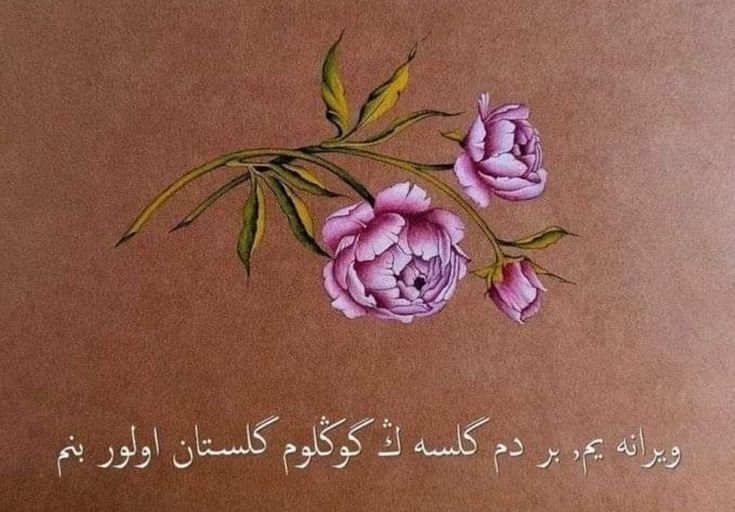 ویرانه یم, بر دم گلسه ڭ گوڭلوم گلستان اولور بنم